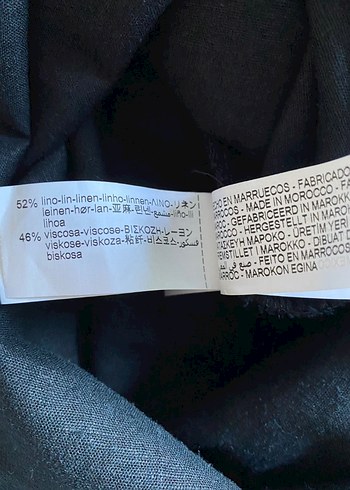 52% lino-lin-linen-linho-linnen-ΛΙΝΟ-リネン
leinen-hør-lan-亚麻-린넨-مشمع-liño-lli
lihoa
46% viscosa-viscose-ΒΙΣΚΟΖΗ-レーヨン
viskose-viskoza-粘纤-비스코스-فسكوز
biskosa
CHO EN MARRUECOS - FABRICADO
RROCOS - MADE IN MOROCCO - FA
ROC - GEFABRICEERD IN MAROKK
ROCCO - HERGESTELLT IN MAROK
ΑΤΑΣΚΕΥΗ ΜΑΡΟΚΟ - ÜRETİM YERİ
REMSTILLET I MAROKKO - DIBUAT
صنع في - FEITO EN MARROCOS
ARROC - MAROKON EGINA